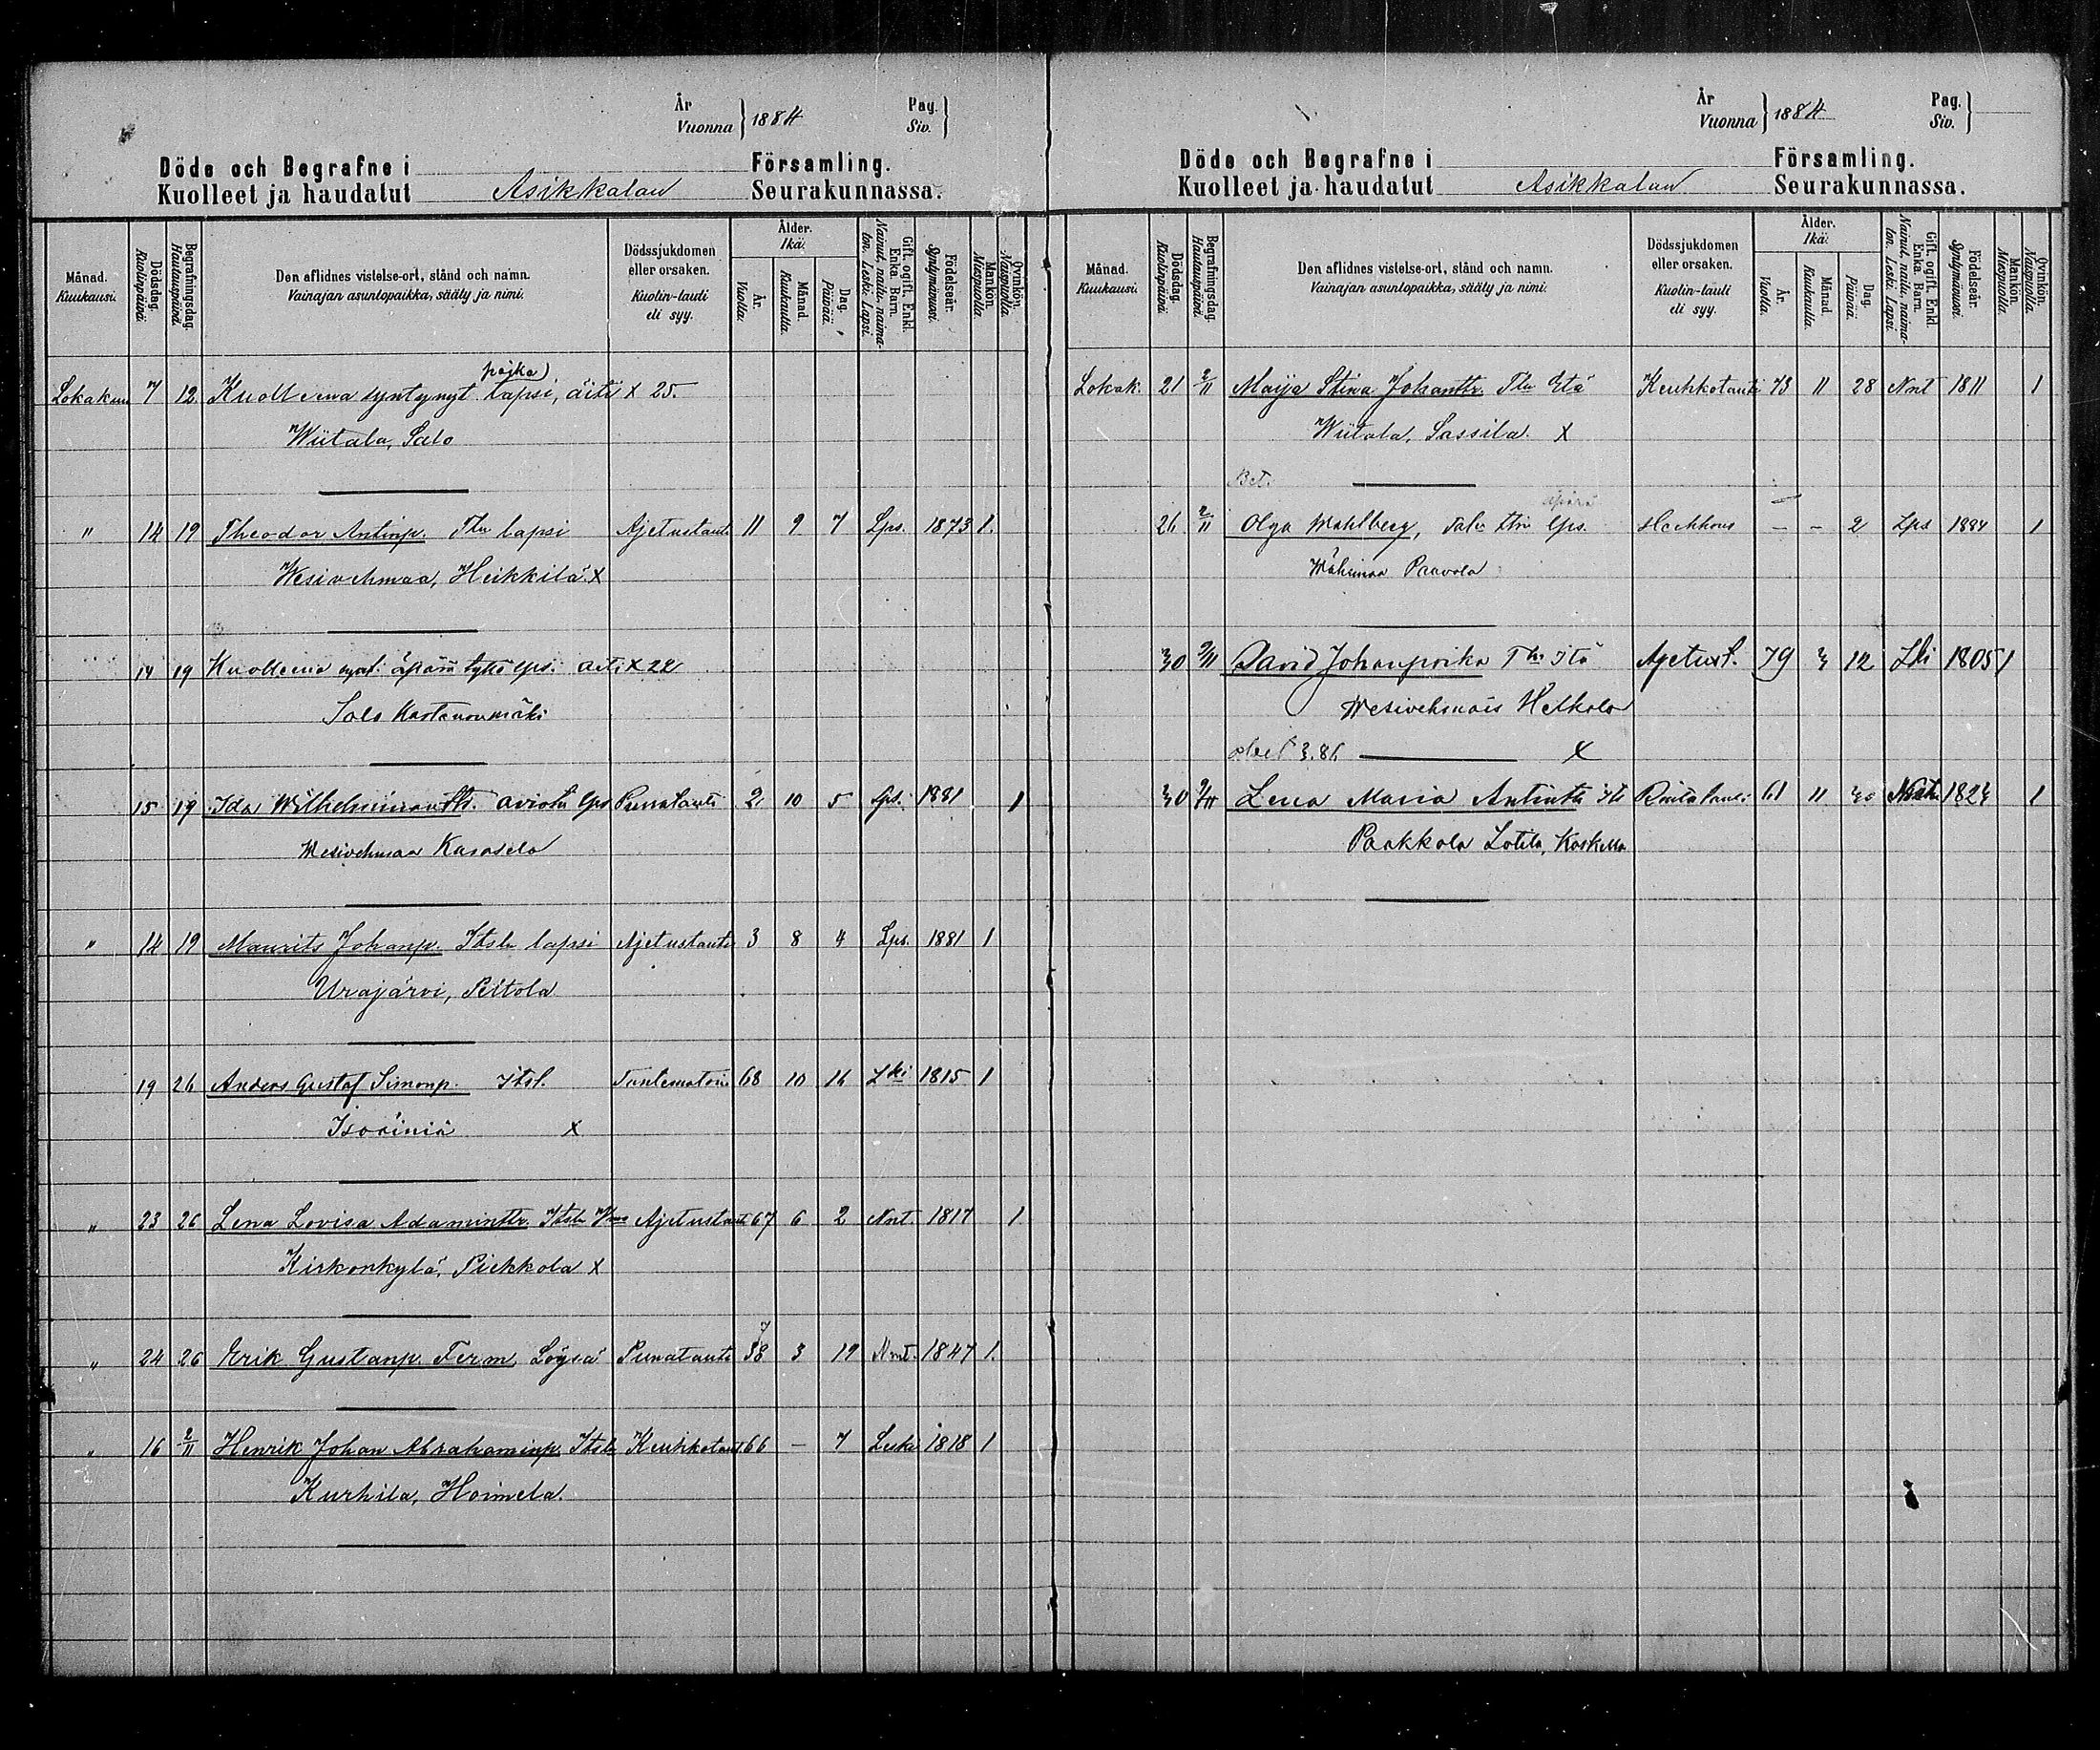 År
Vuonna } 1884
Pag.
Siv. }
Döde och Begrafne i Församling.
Kuolleet ja haudatut Asikkalan Seurakunnassa.
Månad. Kuukausi.
Dödsdag. Kuolinpäivä.
Begrafningsdag. Hautauspäivä.
Den aflidnes vistelse-ort, stånd och namn.
Vainajan asuntopaikka, sääty ja nimi.
Dödssjukdomen eller orsaken.
Kuolin-tauti eli syy.
Ålder. Ikä.
År. Vuotta.
Månad. Kuukautta.
Dag. Päivää.
Gift, ogift. Enkl. Enka. Barn.
Nainut, naitu, naimaton. Leski. Lapsi.
Födelseår. Syntymävuosi.
Mankön. Miespuolta.
Qvinkön. Naispuolta.
poika
Lokakuu 7 12 Kuolleena syntynyt lapsi, äiti x 25.
Wiitala, Salo
" 14 19 Theodor Antinp. Tln lapsi Ajetustauti 11 9 7 Lps. 1873 1.
Wesivehmaa, Heikkilä x
14 19 Kuolleena synt. äpärä tyttö lps. äiti x 22
Salo
15 19 Ida lps Punatauti 2 10 5 lps. 1881 1
Wesivehmaa
" 14 19 Maurits Johanp. Itsln lapsi Ajetustauti 3 8 4 Lps. 1881 1
Urajärvi, Peltola
19 26 Anders Gustaf Simonp. Itsl. Tuntematoin 68 10 16 Lki 1815 1
Isoäiniö x
" 23 26 Lena Lovisa Adamintr. Itsln Wmo Ajetustauti 67 6 2 Nnt. 1817 1
Kirkonkylä, Piekkola x
7
" 24 26 Erik Gustanp. Ferm, Löysä Punatauti 38 3 19 Nmt. 1847 1.
" 16 2/11 Henrik Johan Abrahaminp. Itsln Keuhkotauti 66 – 7 Leski 1818 1
Kurhila, Hoimela.
År
Vuonna } 1884
Pag.
Siv. }
Döde och Begrafne i Församling.
Kuolleet ja haudatut Asikkalan Seurakunnassa.
Månad. Kuukausi.
Dödsdag. Kuolinpäivä.
Begrafningsdag. Hautauspäivä.
Den aflidnes vistelse-ort, stånd och namn.
Vainajan asuntopaikka, sääty ja nimi.
Dödssjukdomen eller orsaken.
Kuolin-tauti eli syy.
Ålder. Ikä.
År. Vuotta.
Månad. Kuukautta.
Dag. Päivää.
Gift, ogift. Enkl. Enka. Barn.
Nainut, naitu, naimaton. Leski. Lapsi.
Födelseår. Syntymävuosi.
Mankön. Miespuolta.
Qvinkön. Naispuolta.
Lokak. 21 2/11 Maija Stina Johantr. Tln Etä Keuhkotauti 73 11 28 Nmt 1811 1
Wiitala, Sassila. x
Bet.
äpärä
26 2/11 Olga Wahlberg, lps. Heikkous – – 2 Lps 1884 1
Paavola
30 9/11 David Johanpoika Itä Ajetust. 79 3 12 Lki 1805 1
x
30 9/11 Lena Maria Antintr Itä 61 11 30 1823 1
Paakkola Lotila, Koskella